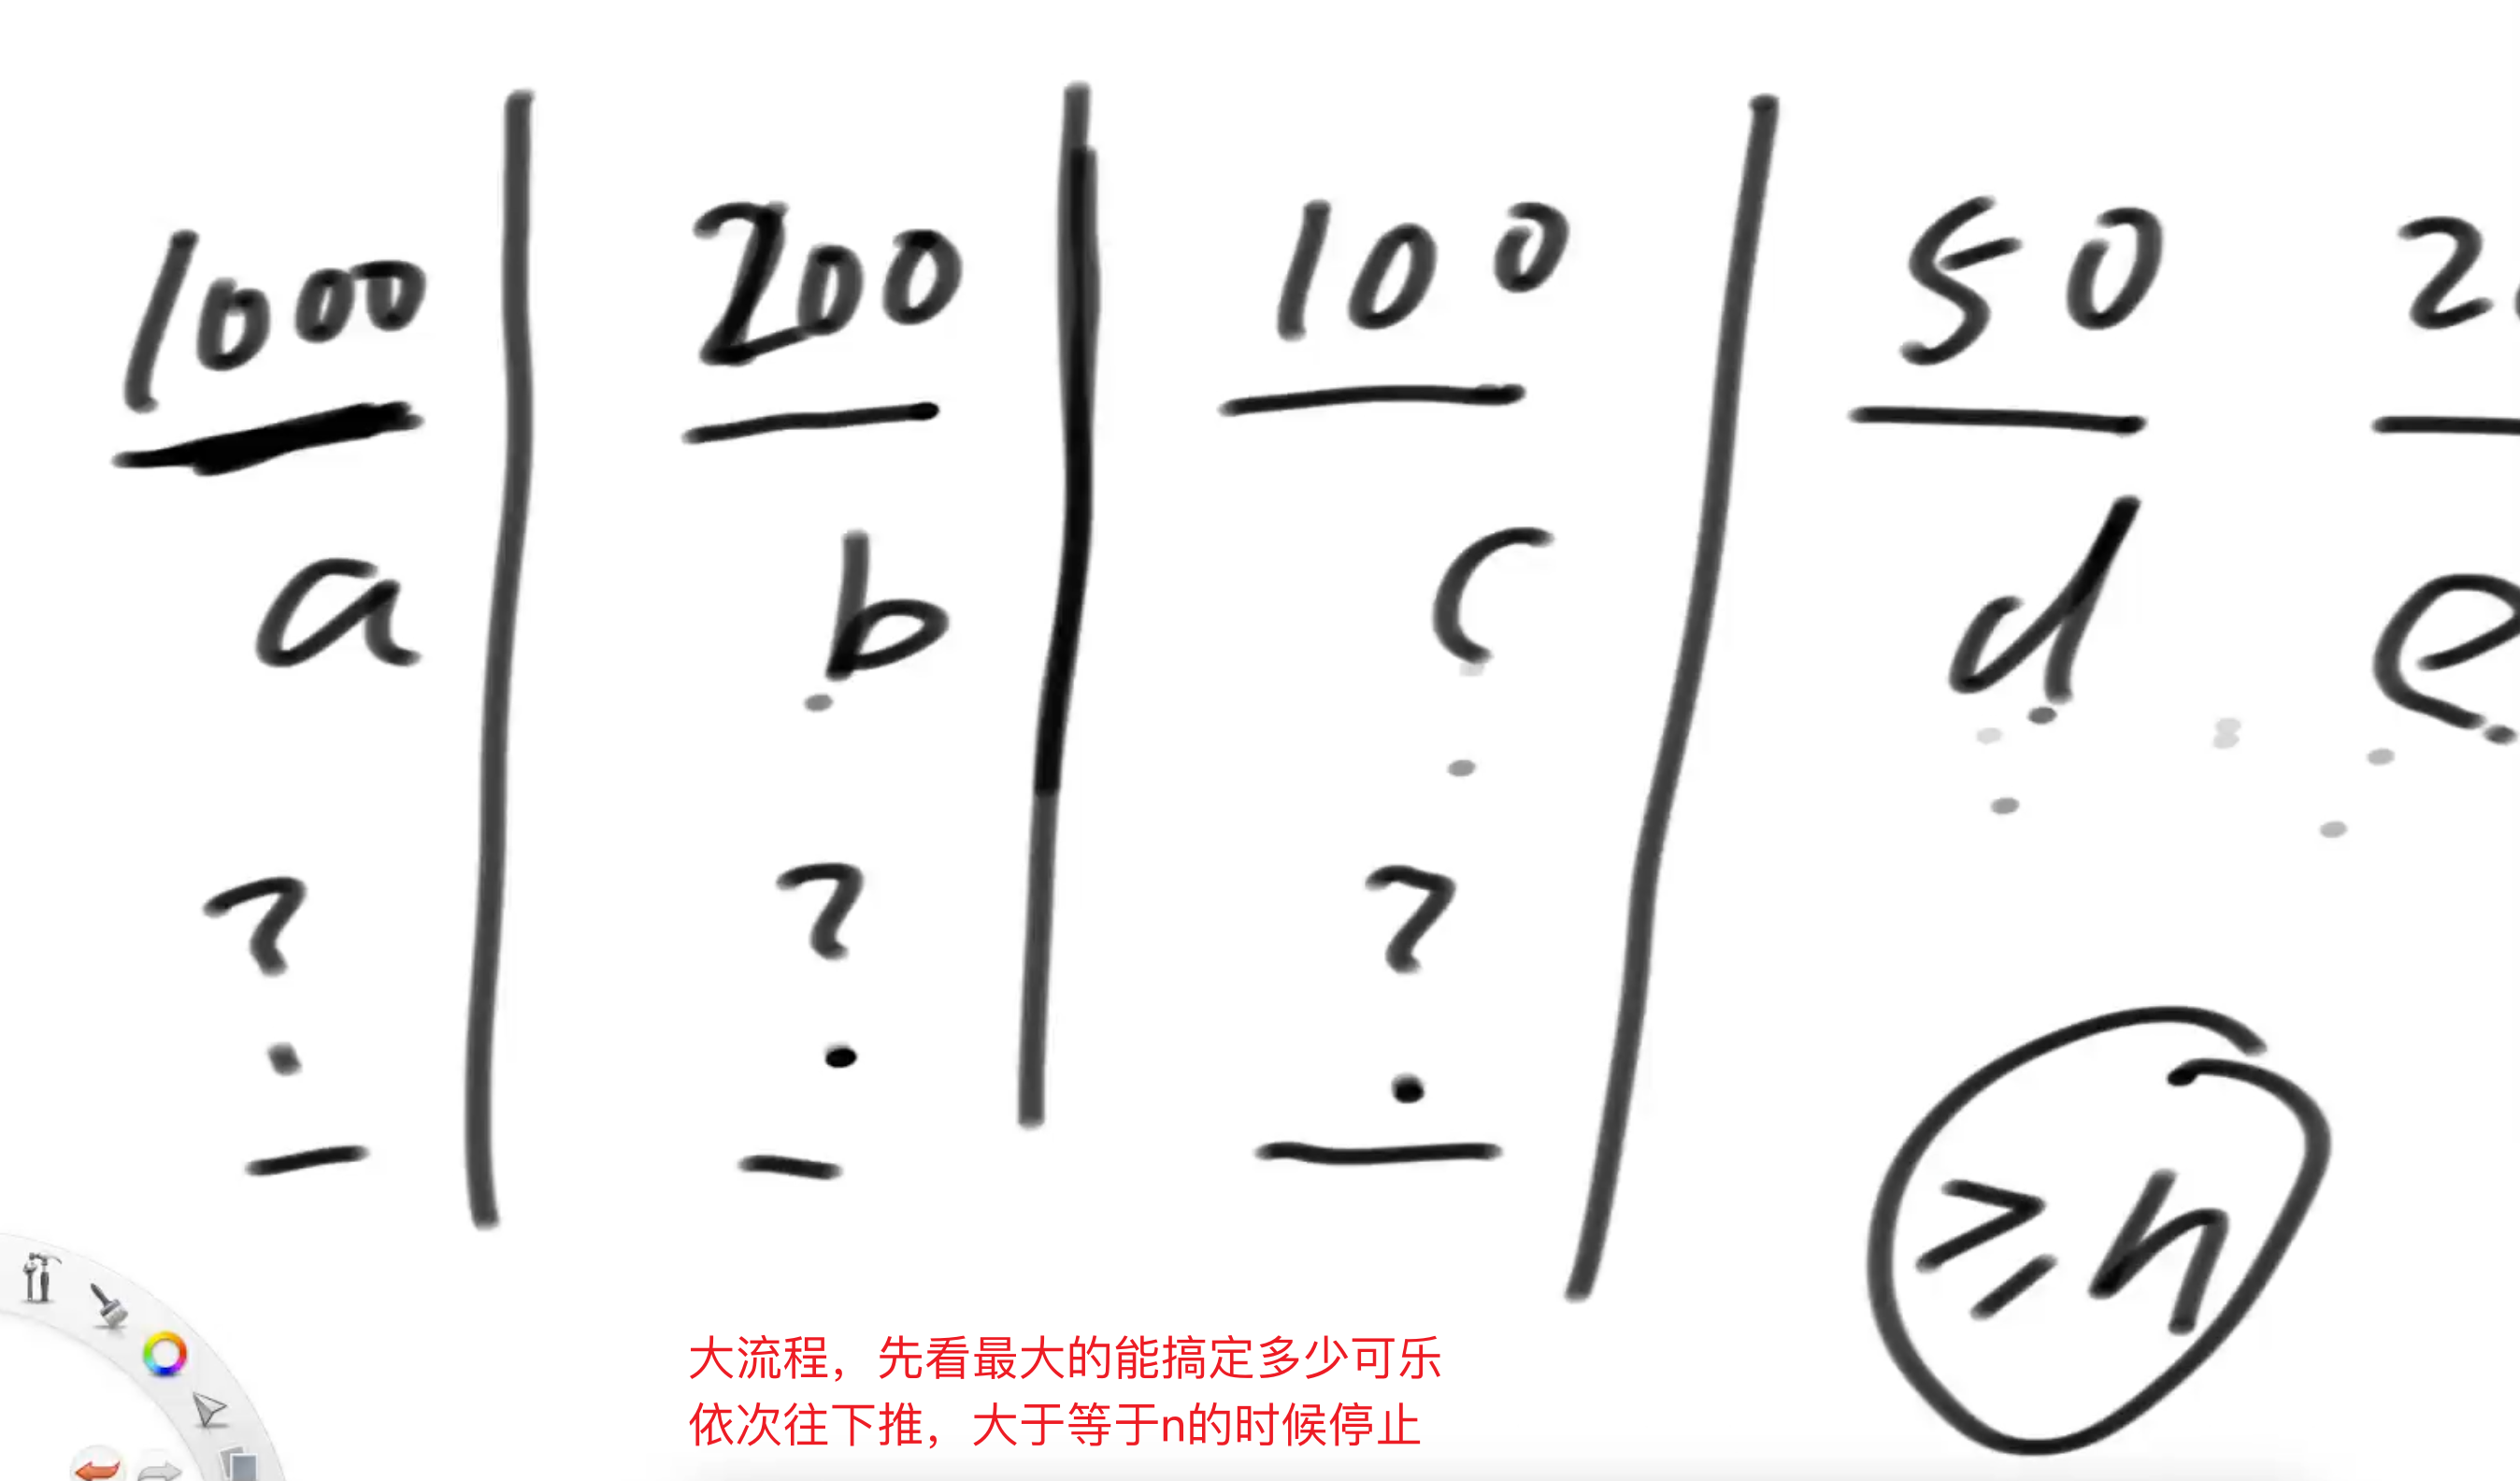 1000 200 100 50 2
a b c d e
? ? ?
≥n
大流程，先看最大的能搞定多少可乐
依次往下推，大于等于n的时候停止